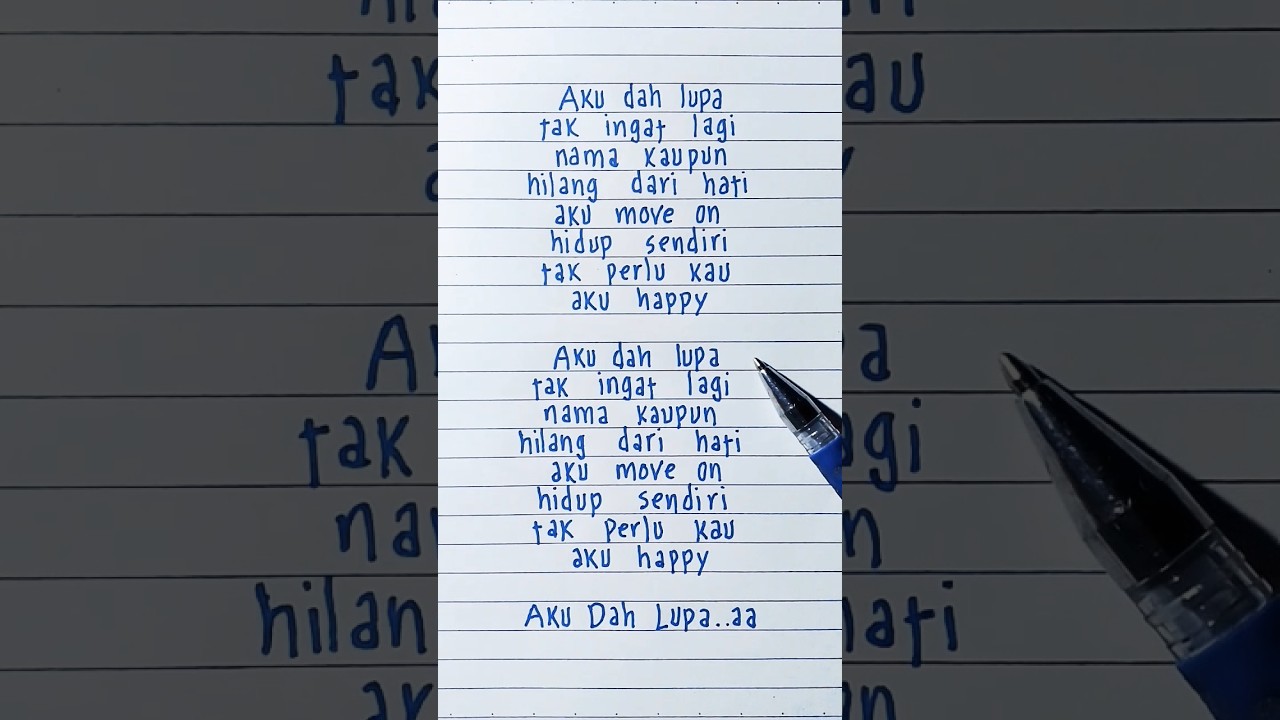 Aku dah lupa
tak ingat lagi
nama kaupun
hilang dari hati
aku move on
hidup sendiri
tak perlu kau
aku happy
Aku dah lupa
tak ingat lagi
nama kaupun
hilang dari hati
aku move on
hidup sendiri
tak perlu kau
aku happy
Aku Dah Lupa..aa